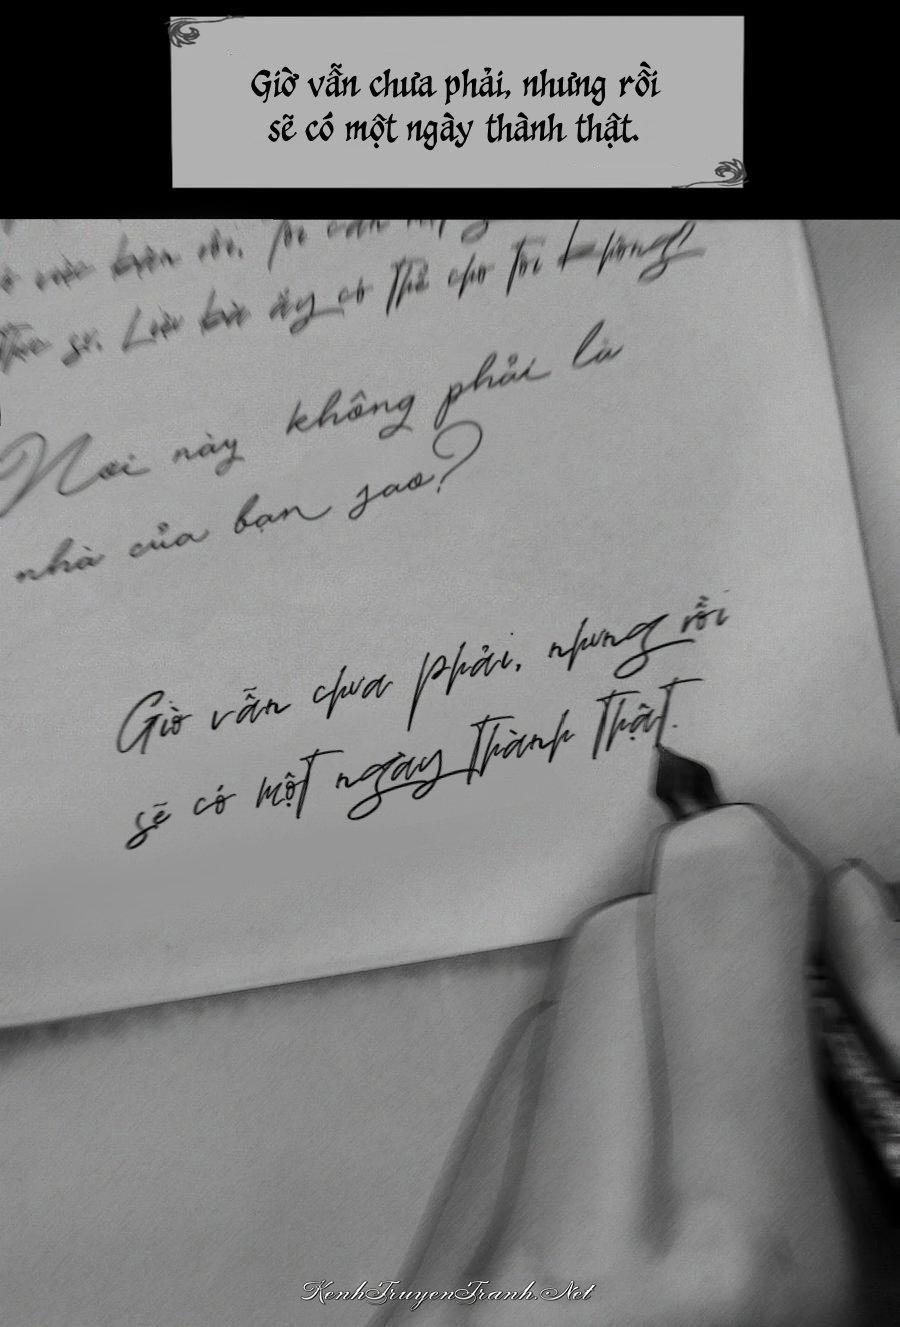 Giờ vẫn chưa phải, nhưng rồi
sẽ có một ngày thành thật.
bà ấy có thể cho tôi không?
Nơi này không phải là
nhà của bạn sao?
Giờ vẫn chưa phải, nhưng rồi
sẽ có một ngày thành thật.
KenhTruyenTranh.Net